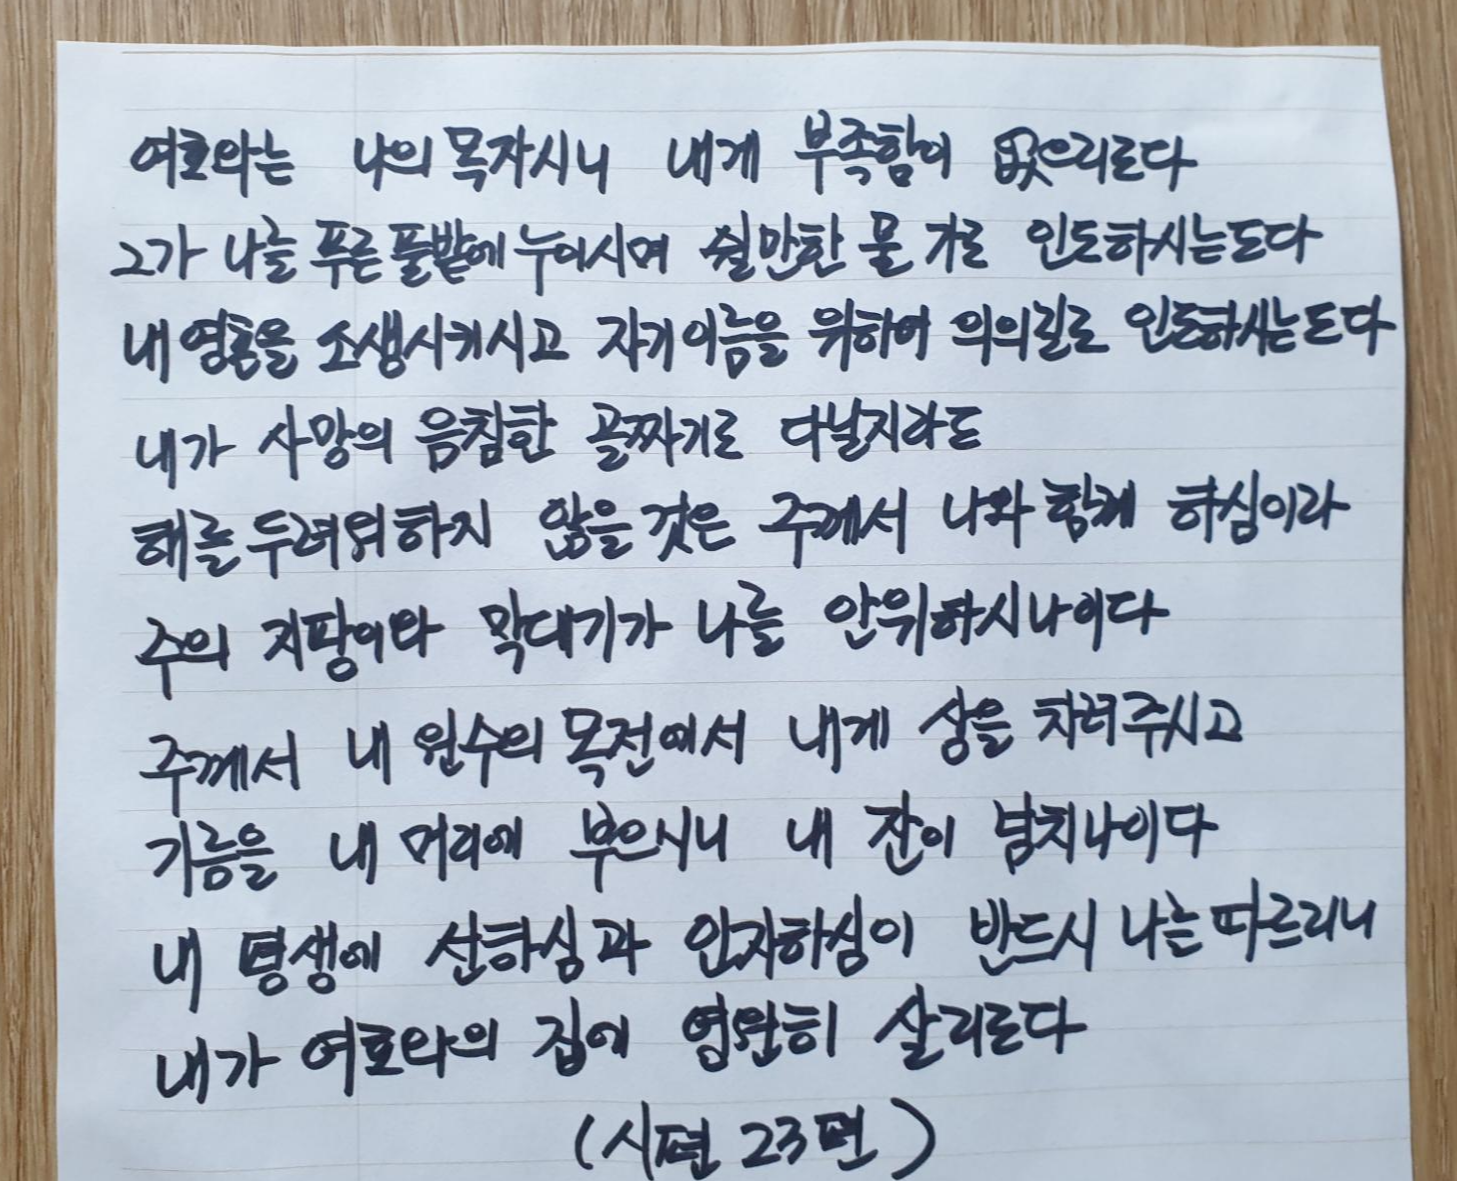 여호와는 나의 목자시니 내게 부족함이 없으리로다
그가 나를 푸른 풀밭에 누이시며 쉴만한 물 가로 인도하시는도다
내 영혼을 소생시키시고 자기 이름을 위하여 의의 길로 인도하시는도다
내가 사망의 음침한 골짜기로 다닐지라도
해를 두려워하지 않을 것은 주께서 나와 함께 하심이라
주의 지팡이와 막대기가 나를 안위하시나이다
주께서 내 원수의 목전에서 내게 상을 차려주시고
기름을 내 머리에 부으시니 내 잔이 넘치나이다
내 평생에 선하심과 인자하심이 반드시 나를 따르리니
내가 여호와의 집에 영원히 살리로다
(시편 23편)